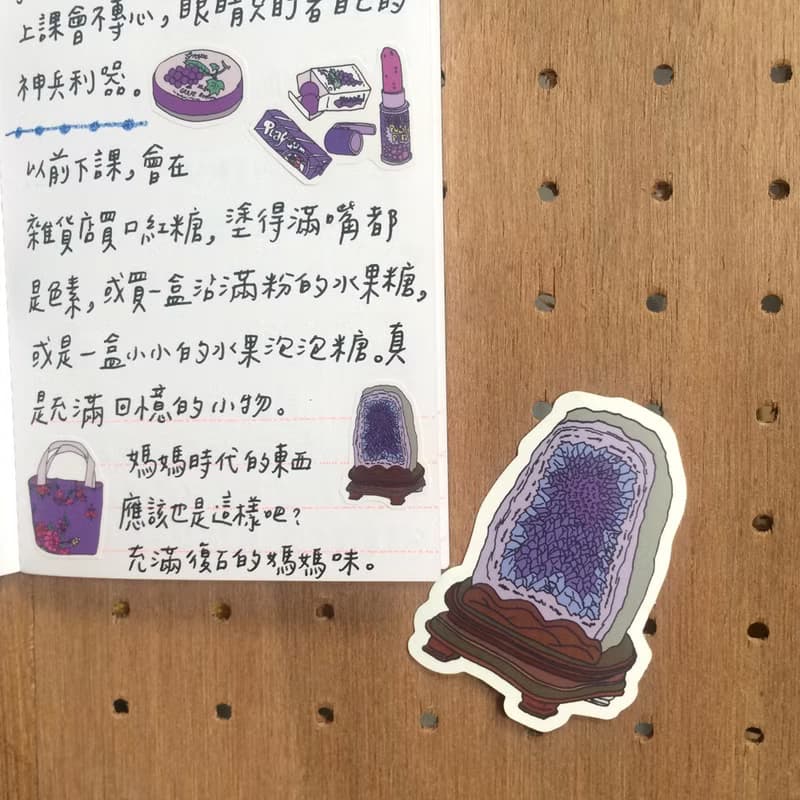 上課會不專心,眼睛 自己的
神兵利器。
Grape
Play gum
以前下課,會在
雜貨店買口紅糖,塗得滿嘴都
是色素,或買一盒沾滿粉的水果糖,
或是一盒小小的水果泡泡糖。真
是充滿回憶的小物。
媽媽時代的東西
應該也是這樣吧?
充滿復古的媽媽味。